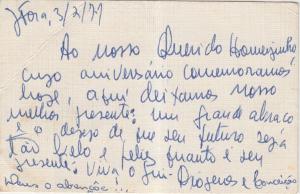 J. Fora, 3/2/71
Ao nosso Querido Homenzinho
cujo aniversário comemoramos
hoje, aqui deixamos nosso
melhor presente: um grande abraço
e o desejo de que seu futuro seja
tão belo e feliz quanto é seu
presente. Viva o
Diógenes e Conceição
Deus o abençõe...